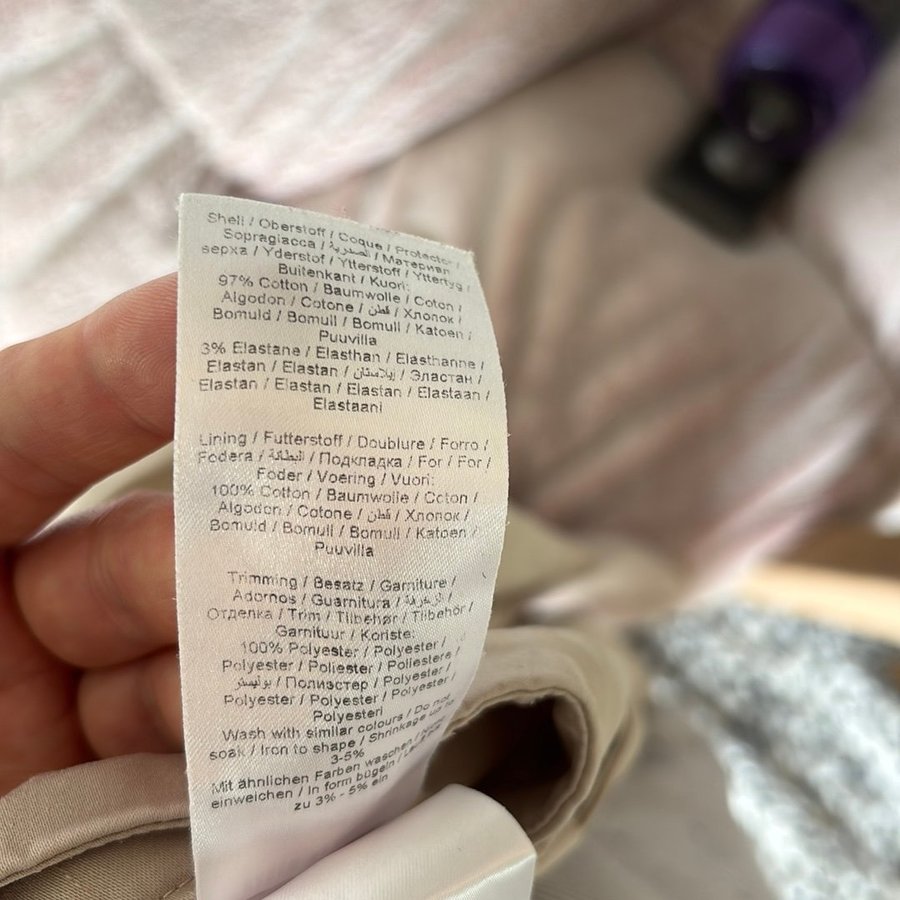 Shell / Oberstoff / Coque / Protector /
Sopraglacca / الصدرية / Материал
верха / Yderstof / Ytterstoff / Yttertyg /
Buitenkant / Kuori:
97% Cotton / Baumwolle / Coton /
Algodon / Cotone / قطن / Хлопок /
Bomuld / Bomull / Bomull / Katoen /
Puuvilla
3% Elastane / Elasthan / Elasthanne /
Elastan / Elastan / إيلاستان / Эластан /
Elastan / Elastan / Elastan / Elastaan /
Elastaani
Lining / Futterstoff / Doublure / Forro /
Fodera / البطانة / Подкладка / For / For /
Foder / Voering / Vuori:
100% Cotton / Baumwolle / Coton /
Algodon / Cotone / قطن / Хлопок /
Bomuld / Bomull / Bomull / Katoen /
Puuvilla
Trimming / Besatz / Garniture /
Adornos / Guarnitura / الزخرفة /
Отделка / Trim / Tilbehør / Tillbehör /
Garnituur / Koriste:
100% Polyester / Polyester /
Polyester / Poliester / Poliestere /
بوليستر / Полиэстер / Polyester /
Polyester / Polyester / Polyester /
Polyesteri
Wash with similar colours / Do not
soak / Iron to shape / Shrinkage up to
3-5%
Mit ähnlichen Farben waschen /
einweichen / In form bügeln /
zu 3% - 5% ein